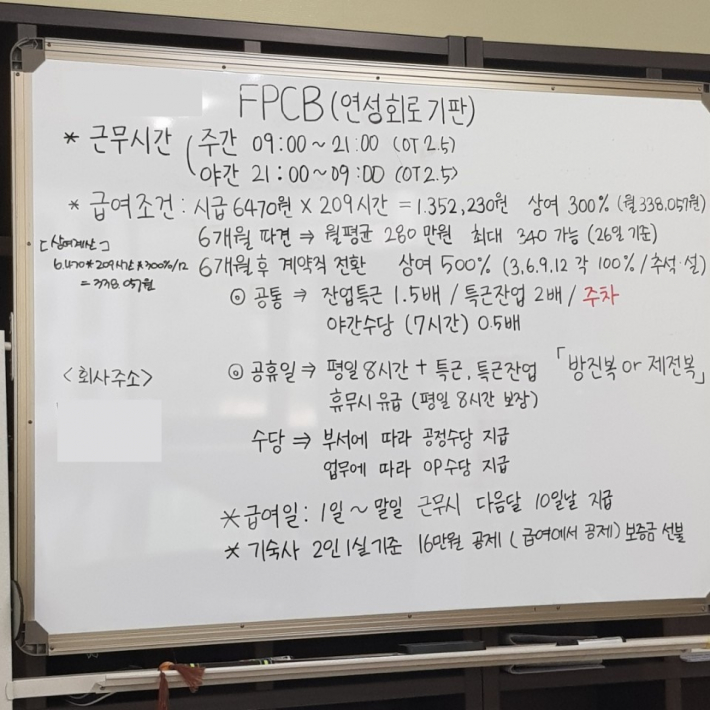 FPCB (연성회로기판)
* 근무시간 ( 주간 09:00 ~ 21:00 (OT 2.5)
야간 21:00 ~ 09:00 (OT 2.5)
* 급여조건 : 시급 6470원 X 209시간 = 1.352,230원 상여 300% (월 338.057원)
[상여계산]
6.470*209시간*300%/12
= 338.057원
6개월 파견 ⇒ 월평균 280만원 최대 340 가능 (26일 기준)
6개월 후 계약직 전환 상여 500% (3,6.9,12 각 100% / 추석·설)
◎ 공통 ⇒ 잔업특근 1.5배 / 특근잔업 2배 / 주차
야간수당 (7시간) 0.5배
<회사주소>
◎ 공휴일 ⇒ 평일 8시간 + 특근, 특근잔업 「방진복 or 제전복」
휴무시 유급 (평일 8시간 보장)
수당 ⇒ 부서에 따라 공정수당 지급
업무에 따라 OP수당 지급
* 급여일 : 1일 ~ 말일 근무시 다음달 10일날 지급
* 기숙사 2인1실 기준 16만원 공제 (급여에서 공제) 보증금 선불